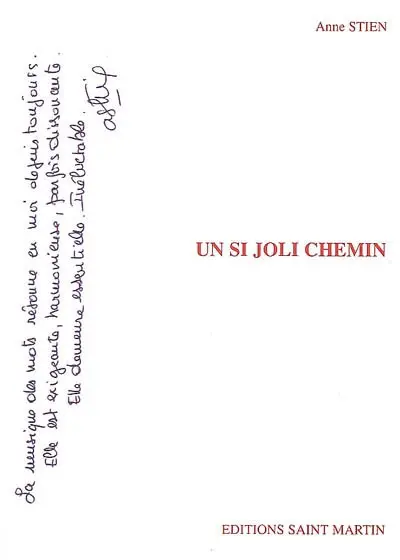 Anne STIEN
La musique des mots résonne en moi depuis toujours.
Elle est exigeante, harmonieuse, parfois dissonante.
Elle demeure essentielle. Inéluctable.
UN SI JOLI CHEMIN
EDITIONS SAINT MARTIN